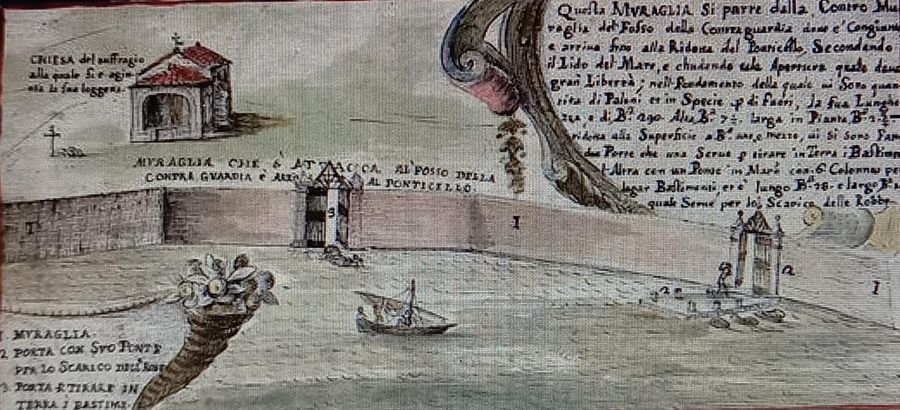 CHIESA del suffragio
alla quale si è agiun
ta la sua loggetta.
Questa MVRAGLIA Si parte dalla Contro Mu
raglia del Fosso della Contraguardia dove e' Congiunta
e arriva fino alla Ridotta del Ponticello, Secondando
il Lido del Mare, e chudendo tale Apertura quale dava
gran Libertà, nell Fondamento della quale ui Sono quan
tita di Paloni et in Specie p di fuori, la Sua Lunghe
za e di B.ª 290. Alta B.ª 7½. larga in Pianta B.ª 2.½
ridotta alla Superficie a B.ª uno, e mezzo, ui Si Sono Fatte
due Porte che una Serue p tirare in Terra i Bastim
l'Altra con un Ponte in Mare con 6. Colonne per
legar Bastimenti, et e' lungo B.ª 28. e largo B.ª
quale Serue per lo Scarico delle Robbe
MVRAGLIA CHE S' ATTACCA AL FOSSO DELLA
CONTRA GVARDIA E
AL PONTICELLO.
1
3
1
2
2
1
1. MVRAGLIA.
2 PORTA CON SVO PONTE
PER LO SCARICO DELL' ROBE
3 PORTA P TIRARE IN
TERRA I BASTIME